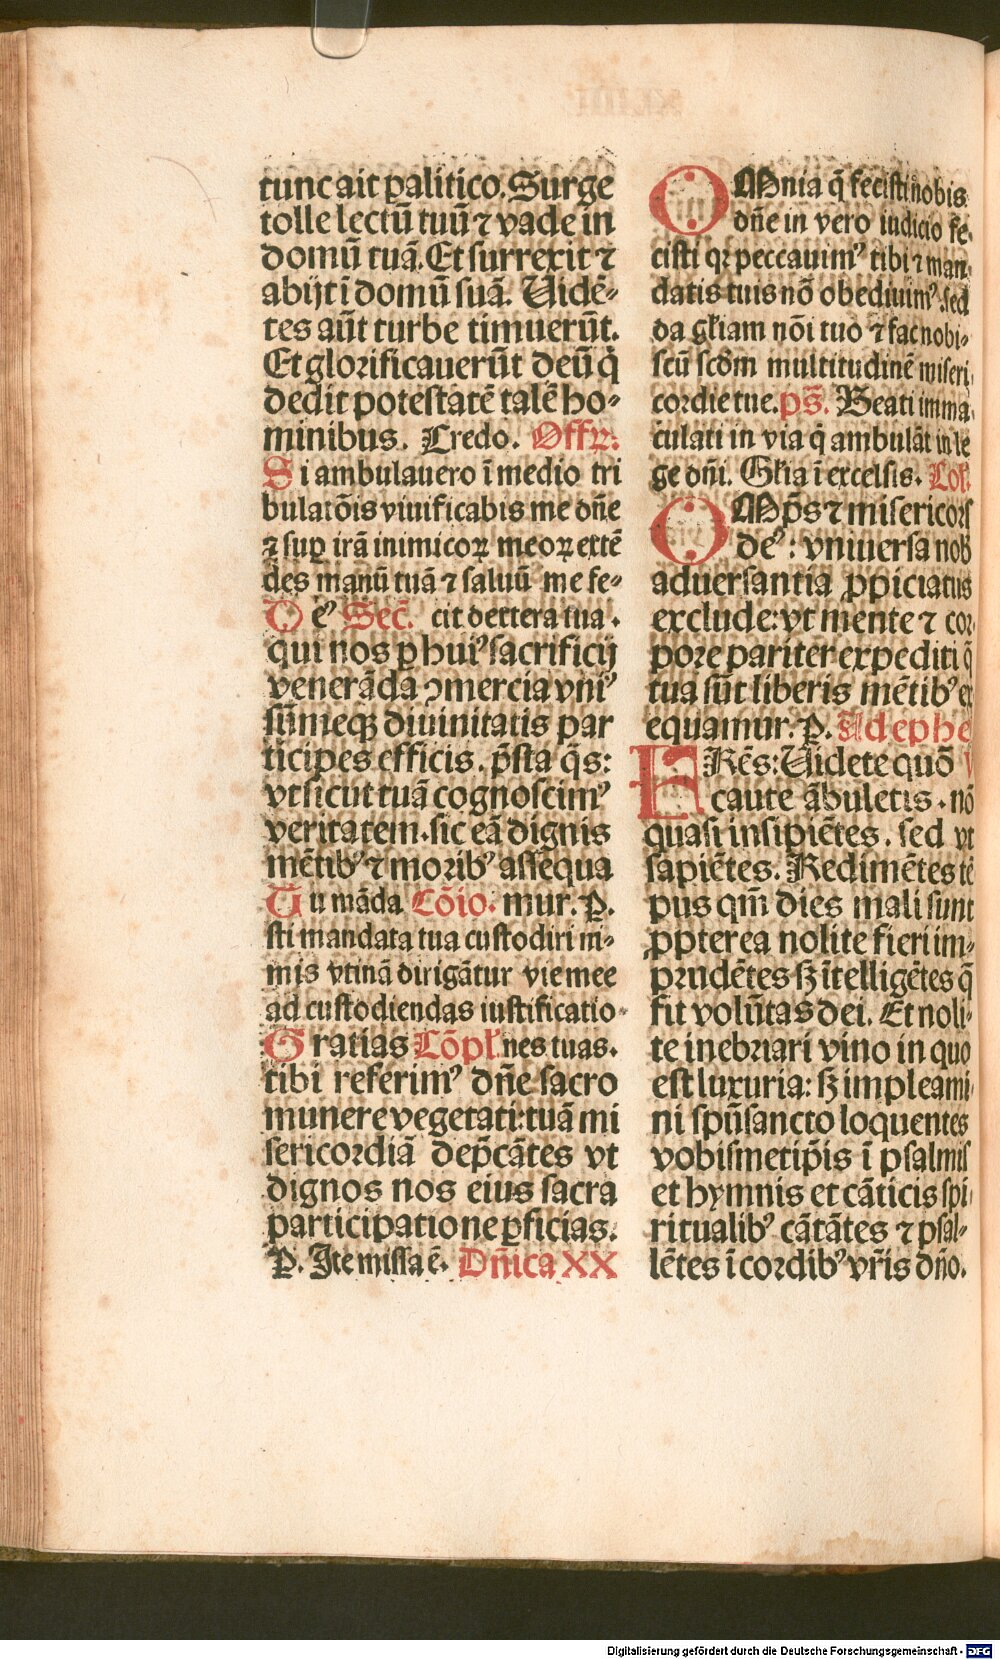 tunc ait ꝑalitico. Surge
tolle lectū tuū ⁊ vade in
domū tuā. Et surrexit ⁊
abijt ī domū suā. Uidē-
tes aūt turbe timuerūt.
Et glorificauerūt deū q̇
dedit potestatē talē ho-
minibus. Credo. Offꝝ:
Si ambulauero ī medio tri
bulatōis viuificabis me dn̄e
⁊ suꝑ irā inimicoꝝ meoꝝ extē
des manū tuā ⁊ saluū me fe-
Deꝰ Sec̄. cit dextera tua.
qui nos ꝑ huiꝰ sacrificij
venerāda ꝯmercia vniꝰ
sūmeqꝫ diuinitatis par
ticipes efficis. p̄sta q̄s:
vt sicut tuā cognoscimꝰ
veritatem. sic eā dignis
mētibꝰ ⁊ moribꝰ assequa
Tu māda Cōio. mur. P.
sti mandata tua custodiri ni-
mis vtinā dirigātur vie mee
ad custodiendas iustificatio-
Gratias Cōpl. nes tuas.
tibi referimꝰ dn̄e sacro
munere vegetati: tuā mi
sericordiā dep̄cātes vt
dignos nos eius sacra
participatione ꝑficias.
P. Ite missa ē. Dn̄ica XX
OMnia q̄ fecisti nobis
dn̄e in vero iudicio fe-
cisti qꝛ peccauimꝰ tibi ⁊ man-
datis tuis nō obediuimꝰ. sed
da gl̄iam nōi tuo ⁊ fac nobi-
scū scd̄m multitudinē miseri-
cordie tue. ps̄. Beati imma-
culati in via q̇ ambulāt in le
ge dn̄i. Gl̄ia ī excelsis. Col̄.
OMp̄s ⁊ misericors
deꝰ: vniuersa nob̄
aduersantia ꝓpiciatus
exclude: vt mente ⁊ cor-
pore pariter expediti q̄
tua sūt liberis mētibꝰ ex
equamur. P. Ad ephe
FRēs: Uidete quō V
caute ābuletis. nō
quasi insipiētes. sed vt
sapiētes. Redimētes tē
pus qm̄ dies mali sunt
ꝓpterea nolite fieri im-
prudētes sꝫ ītelligētes q̄
sit volūtas dei. Et noli-
te inebriari vino in quo
est luxuria: sꝫ impleami-
ni spūsancto loquentes
vobismetip̄is ī psalmis
et hymnis et cāticis spi-
ritualibꝰ cātātes ⁊ psal-
lētes ī cordibꝰ vr̄is dn̄o.
Digitalisierung gefördert durch die Deutsche Forschungsgemeinschaft - DFG